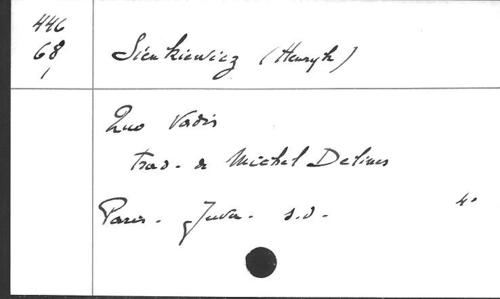 446
68
1
Sienkiewicz (Henryk)
Quo Vadis
trad. de Michel Delines
Paris - Juven - s.d. - 4°